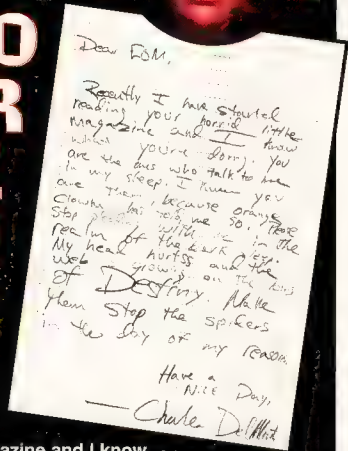 O
R
Dear EGM,
Recently I have started
reading your horrid little
magazine and I know
what you're doing. You
are the ones who talk to me
in my sleep. I know you
are them, because orange
clown has told me so. Please
stop with me in the
realm of the dark
My head hurtss and the
web grows on the
of Destiny. Make
them stop the spikers
in the day of my reason.
Have a
Nice Day,
— Charles
azine and I know